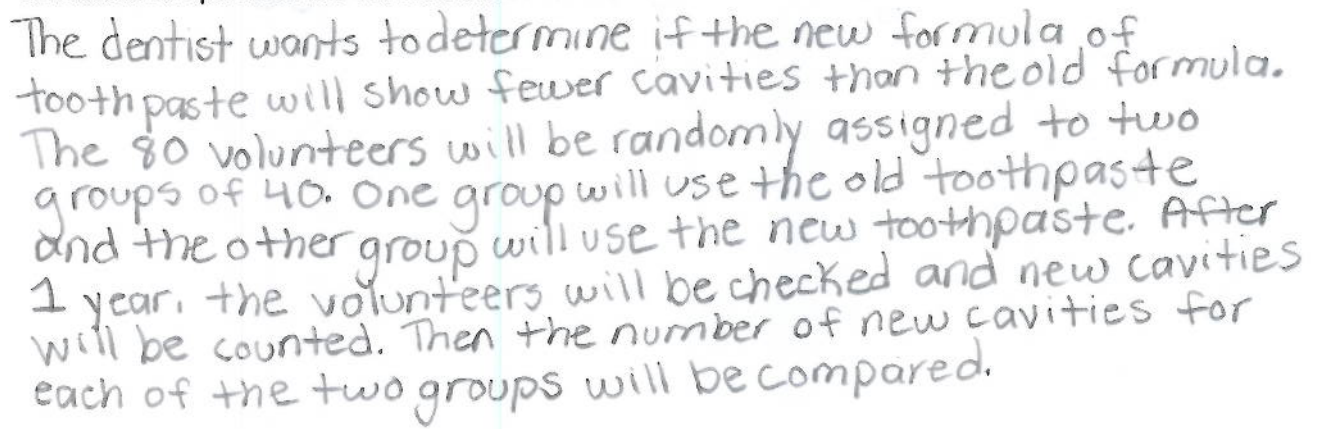 The dentist wants to determine if the new formula of
toothpaste will show fewer cavities than the old formula.
The 80 volunteers will be randomly assigned to two
groups of 40. One group will use the old toothpaste
and the other group will use the new toothpaste. After
1 year, the volunteers will be checked and new cavities
will be counted. Then the number of new cavities for
each of the two groups will be compared.